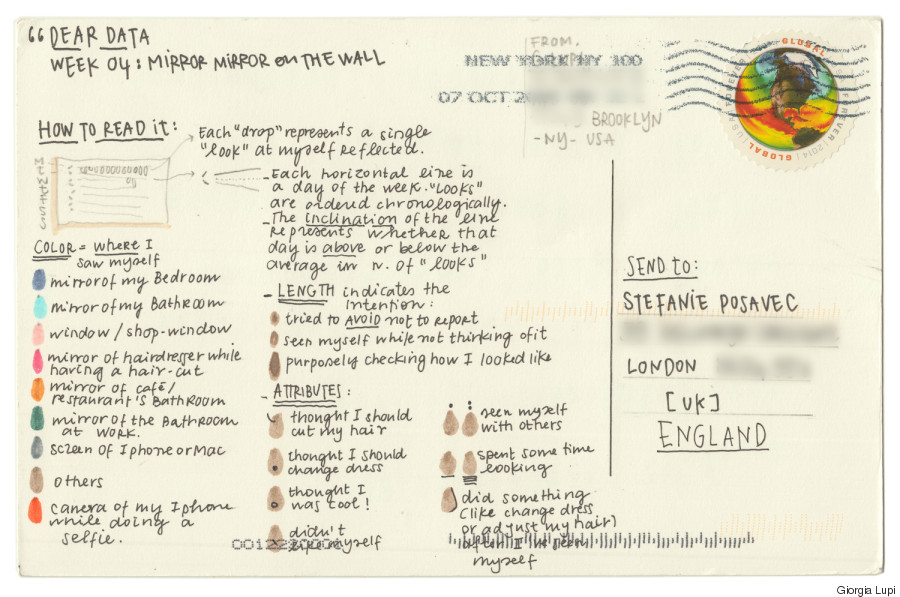 “ DEAR DATA
WEEK 04: MIRROR MIRROR on THE WALL
FROM,
NEW YORK NY 100
07 OCT 2
BROOKLYN
-NY- USA
GLOBAL
FOREVER
USA
2014
GLOBAL
HOW TO READ iT:
Each "drop" represents a single
"look" at myself reflected.
- Each horizontal line is
a day of the week. "Looks"
are ordered chronologically.
- The inclination of the line
represents whether that
day is above or below the
average in n. of "looks"
COLOR = where I
saw myself
mirror of my Bedroom
mirror of my Bathroom
window / shop-window
mirror of hairdresser while
having a hair-cut
mirror of café/
restaurant's Bathroom
mirror of the Bathroom
at work.
screen of Iphone or Mac
others
camera of my Iphone
while doing a
selfie.
- LENGTH indicates the
Intention:
tried to AVOID not to report
seen myself while not thinking of it
purposely checking how I looked like
- ATTRIBUTES:
thought I should
cut my hair
thought I should
change dress
thought I
was cool!
didn't
like myself
seen myself
with others
spent some time
looking
did something
(like change dress
or adjust my hair)
after I've seen
myself
SEND to:
STEFANIE POSAVEC
LONDON
[UK]
ENGLAND
Giorgia Lupi